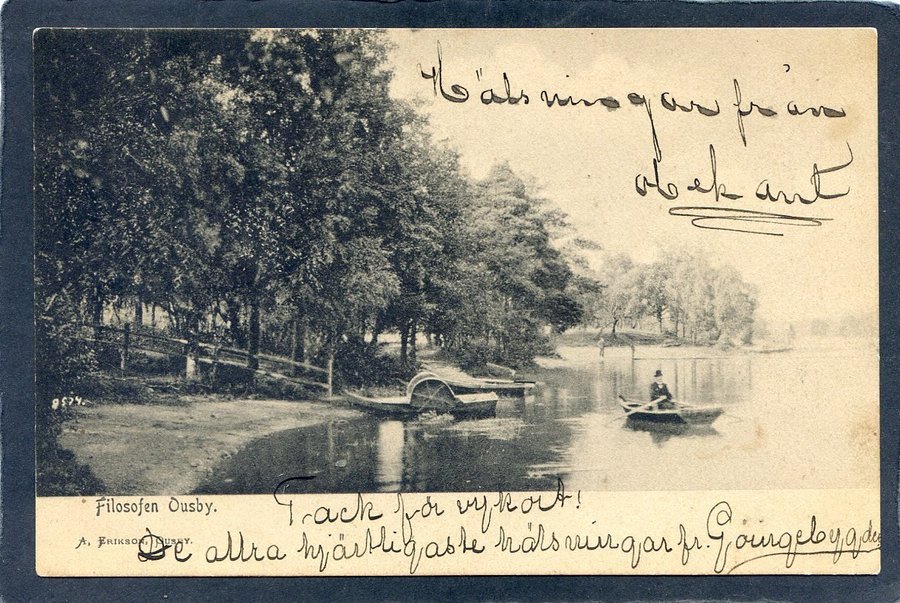 Hälsningar från
obekant
8574.
Filosofen Ousby.
Tack för vykort!
A. Erikson, Ousby.
De allra hjärtligaste hälsningar fr. Göingebygden